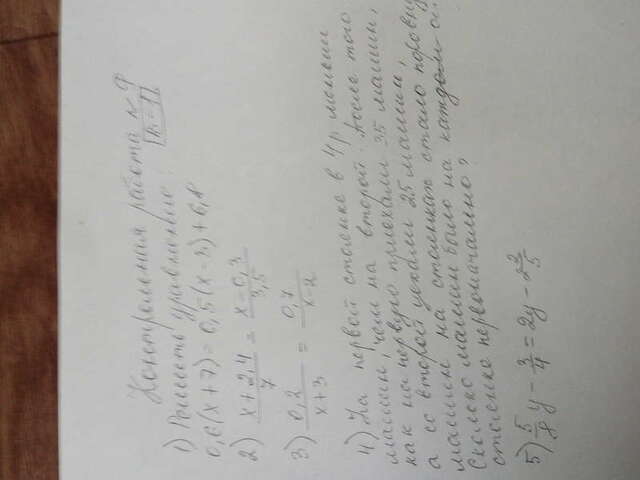 Контрольная работа № 9
К-II
1) Решить уравнение:
0,6(x+7) = 0,5(x-3)+6,8
2) (x+2,4)/7 = (x-0,3)/3,5
3) 0,2/(x+3) = 0,7/(x-2)
4) На первой стоянке в 4р меньше
машин, чем на второй. После того
как на первую приехали 35 машин,
а со второй уехали 25 машин,
машин на стоянках стало поровну
Сколько машин было на каждой
стоянке первоначально?
5) 5/8 y - 3/4 = 2y - 2 2/5